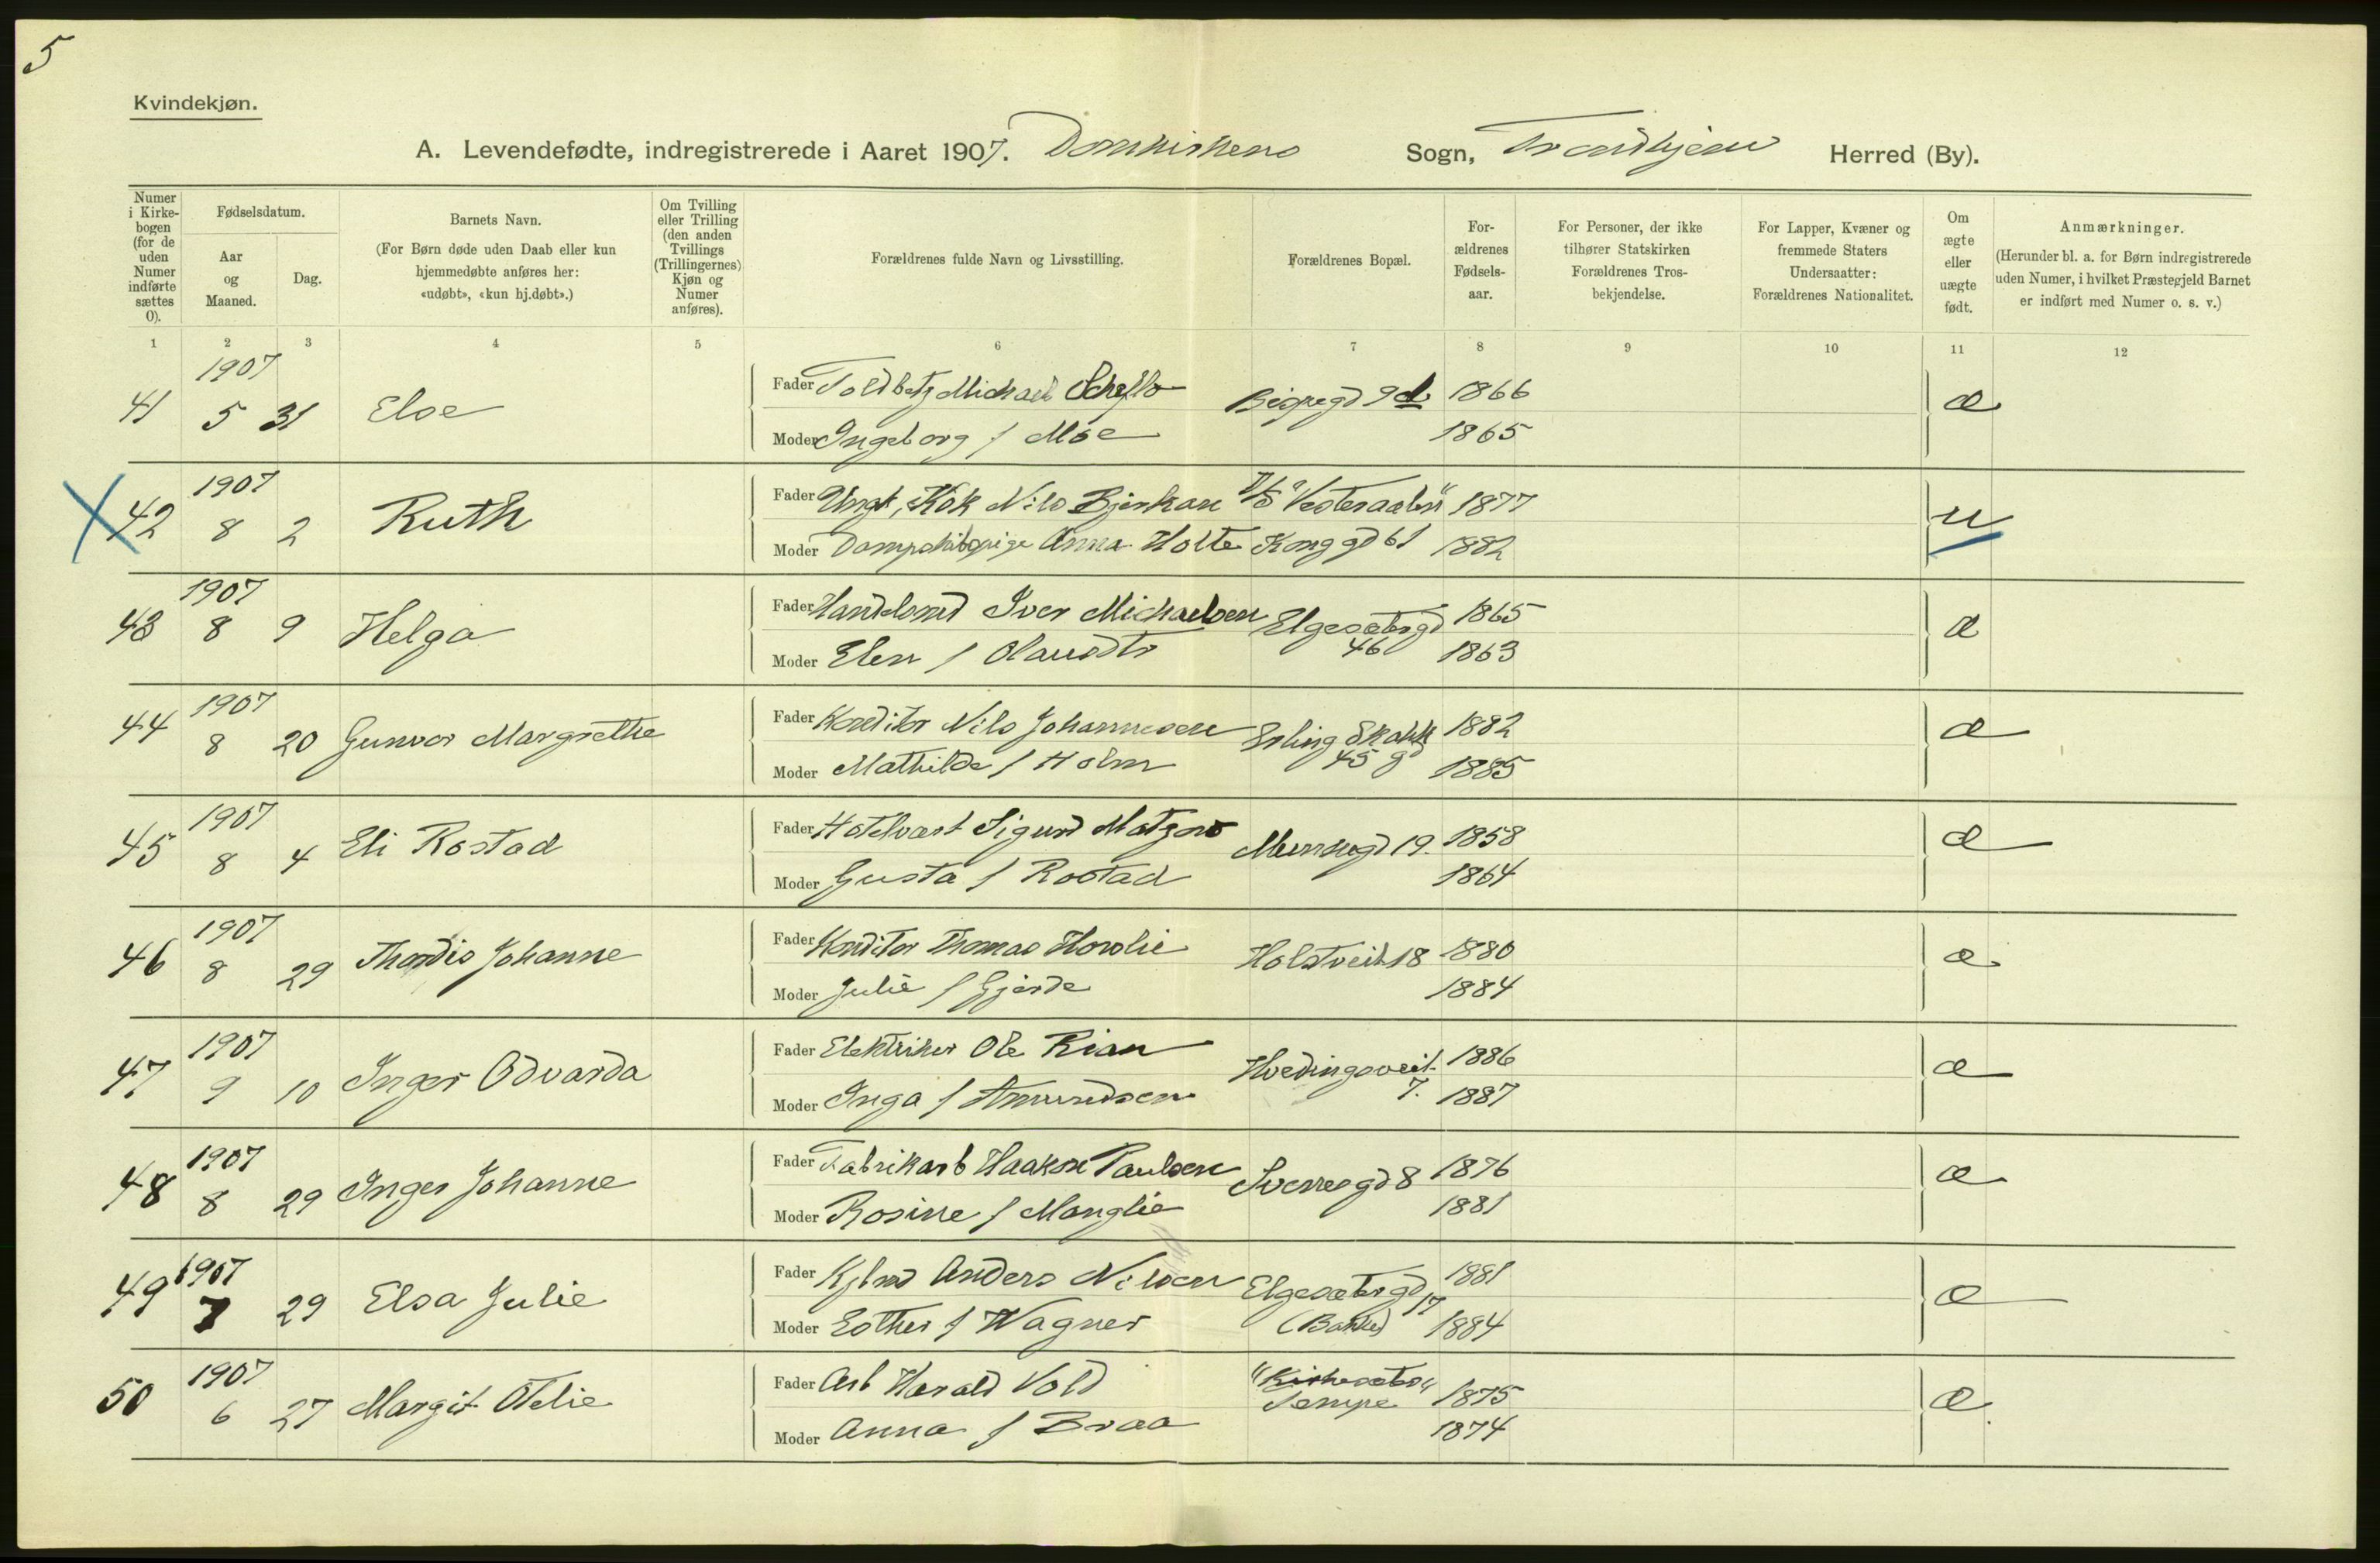 5
Kvindekjøn.
A. Levendefødte, indregistrerede i Aaret 1907. Domkirkens Sogn, Trondhjem Herred (By).
Numer i Kirkebogen (for de uden Numer indførte sættes 0).
Fødselsdatum.
Aar og Maaned.
Dag.
Barnets Navn.
(For Børn døde uden Daab eller kun hjemmedøbte anføres her: «udøbt», «kun hj.døbt».)
Om Tvilling eller Trilling (den anden Tvillings (Trillingernes) Kjøn og Numer anføres).
Forældrenes fulde Navn og Livsstilling.
Forældrenes Bopæl.
For-ældrenes Fødsels-aar.
For Personer, der ikke tilhører Statskirken Forældrenes Tros-bekjendelse.
For Lapper, Kvæner og fremmede Staters Undersaatter: Forældrenes Nationalitet.
Om ægte eller uægte født.
Anmærkninger.
(Herunder bl. a. for Børn indregistrerede uden Numer, i hvilket Præstegjeld Barnet er indført med Numer o. s. v.)
1 2 3 4 5 6 7 8 9 10 11 12
1907
41 5 31 Else
Fader Toldbetj Michael Scheflo Bispegd 9d 1866 æ
Moder Ingeborg f Moe 1865
1907
X 42 8 2 Ruth
Fader Ungk, Kok Nils D/S "Vesteraalen" 1877 u
Moder Dampskibspige Anna Holte Konggd 61 1882
1907
43 8 9 Helga
Fader Handelsmd Iver Michaelsen Elgesætergd 46 1865 æ
Moder Elen f Olausdtr 1863
1907
44 8 20 Gunvor Margrethe
Fader Konditor Nils Johannesen Erling Skakk gd 45 1882 æ
Moder Mathilde f Holm 1885
1907
45 8 4 Eli Rostad
Fader Hotelvært Sigurd Matzow Munkegd 19. 1858 æ
Moder Gusta f Rostad 1864
1907
46 8 29 Thordis Johanne
Fader Konditor Thomas Hovslie Holstveit 18 1880 æ
Moder Julie f Gjerde 1884
1907
47 9 10 Inger Odvarda
Fader Elektriker Ole Rian Hvedingsveit. 7. 1886 æ
Moder Inga f Amundsen 1887
1907
48 8 29 Inger Johanne
Fader Fabrikarb Haakon Paulsen Sverresgd 8 1876 æ
Moder Rosine f Manglie 1881
1907
49 7 29 Elsa Julie
Fader Kjbmd Anders Nilsen Elgesætergd 17 1881 æ
Moder Esther f Wagner (Bakke) 1884
1907
50 6 27 Margit Otelie
Fader Arb Harald Vold "Kirkesæter" Sempe 1875 æ
Moder Anna f Braa 1874